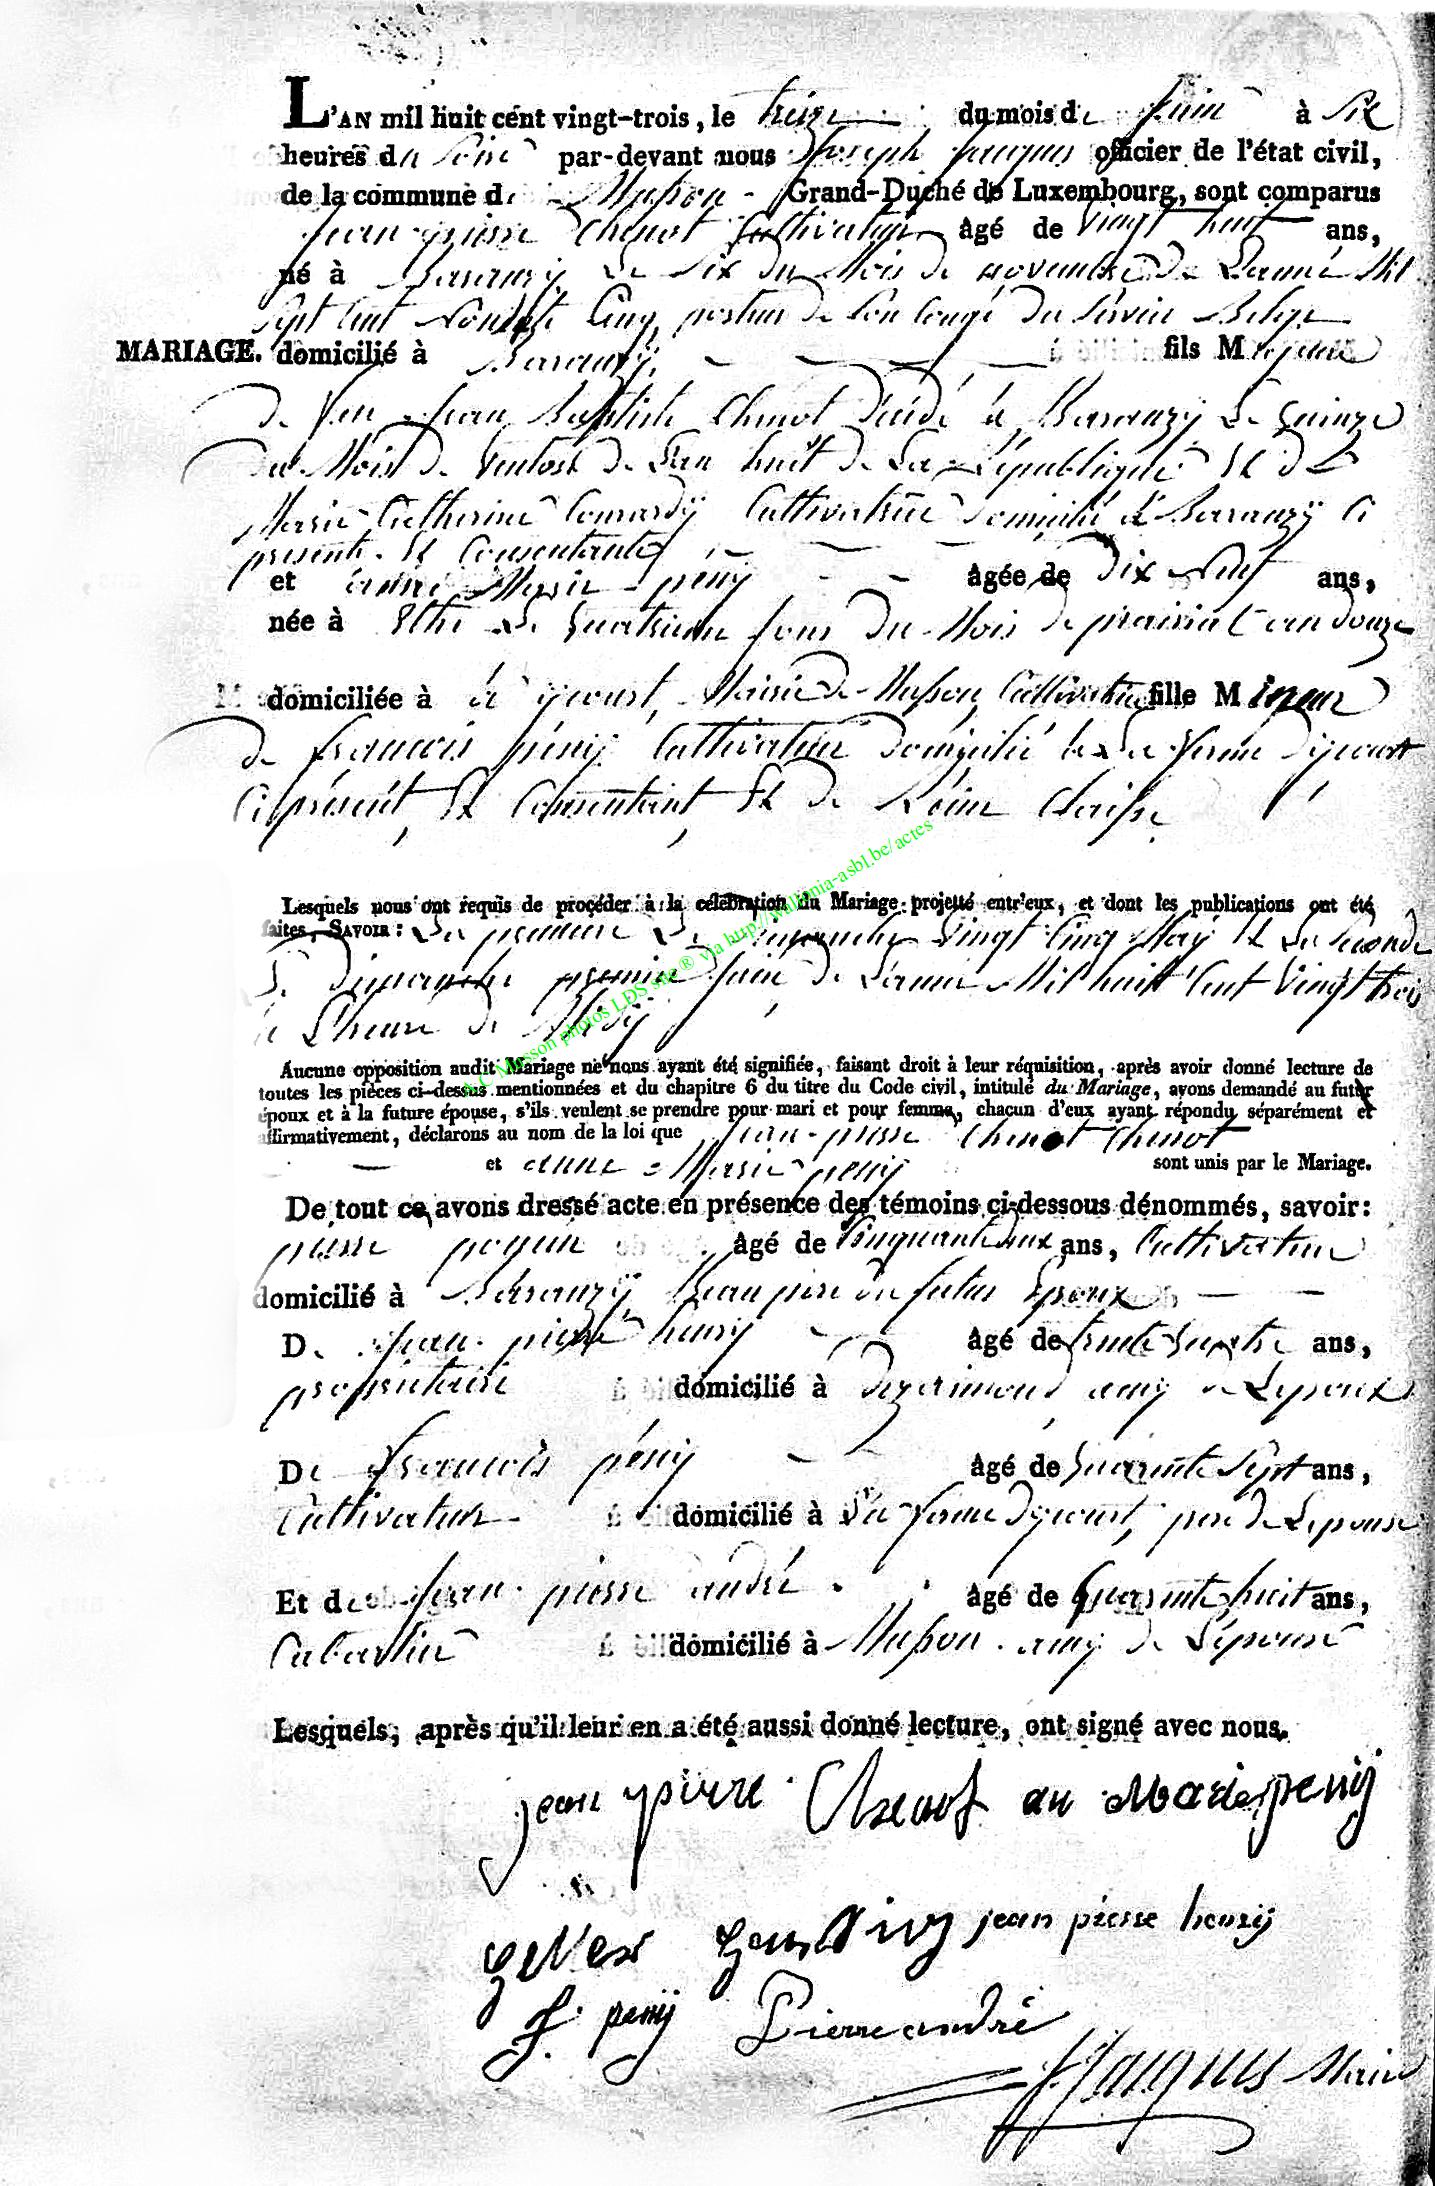 L'AN mil huit cent vingt-trois, le treize du mois de Juin à Six
heures du Soir par-devant nous Joseph Jacques officier de l'état civil,
de la commune de Musson Grand-Duché de Luxembourg, sont comparus
Jean-pierre Chenot Cultivateur âgé de Vingt huit ans,
né à Baranzÿ Le Six du Mois de novembre de L'année Mil
Sept Cent Nonante Cinq, porteur de Son Congé du Service Belge
MARIAGE. domicilié à Baranzÿ, fils Majeur
de feu Jean Baptiste Chenot décédé à Baranzÿ Le Quinze
du Mois de Ventose de L'an huit de La République Et de
Marie Catherine Comardÿ Cultivatrice domicilié à Baranzÿ Ci
présente Et Consentante
et anne Marie pénÿ âgée de Dix Neuf ans,
née à Ethe Le Quatrieme Jour Du Mois de prairial an douze
domiciliée à à gicourt, Mairie de Musson, Cultivatrice fille Mineur
de francois pénÿ Cultivateur Domicilié à La ferme Dgicourt
Ci présent, Et Consentant Et de Reine Claisse
Lesquels nous ont requis de procéder à la célébration du Mariage projetté entr'eux, et dont les publications ont été
faites, SAVOIR : La premiere Le Dimanche Vingt Cinq May Et La Seconde
Le Dimanche premier Juin de L'année Mil huit Cent Vingt trois
à L'heure de Midÿ
Aucune opposition audit Mariage ne nous ayant été signifiée, faisant droit à leur réquisition, après avoir donné lecture de
toutes les pièces ci-dessus mentionnées et du chapitre 6 du titre du Code civil, intitulé du Mariage, avons demandé au futur
époux et à la future épouse, s'ils veulent se prendre pour mari et pour femme, chacun d'eux ayant répondu séparément et
affirmativement, déclarons au nom de la loi que Jean-pierre Chenot Chenot
et anne Marie penÿ sont unis par le Mariage.
De tout ce avons dressé acte en présence des témoins ci-dessous dénommés, savoir:
pierre âgé de Cinquante Deux ans, Cultivateur
domicilié à Baranzÿ Beau pere du futur Epoux
De Jean pierre henrÿ âgé de trente Quatre ans,
propriétaire domicilié à amÿ de Lepoux
De francois pénÿ âgé de Quarante Sept ans,
Cultivateur domicilié à La ferme Dgicourt, pere de Lepouse
Et de Jean pierre andré âgé de Quarante huit ans,
Cabartier domicilié à Musson amÿ de L'épouse
Lesquels, après qu'il leur en a été aussi donné lecture, ont signé avec nous.
jean pierre Chenot an Marie penÿ
jean pierre henrÿ
f. penÿ Pierre andré
J Jacques Maire
A.C Musson photos LDS site ® via http://wallonia-asbl.be/actes